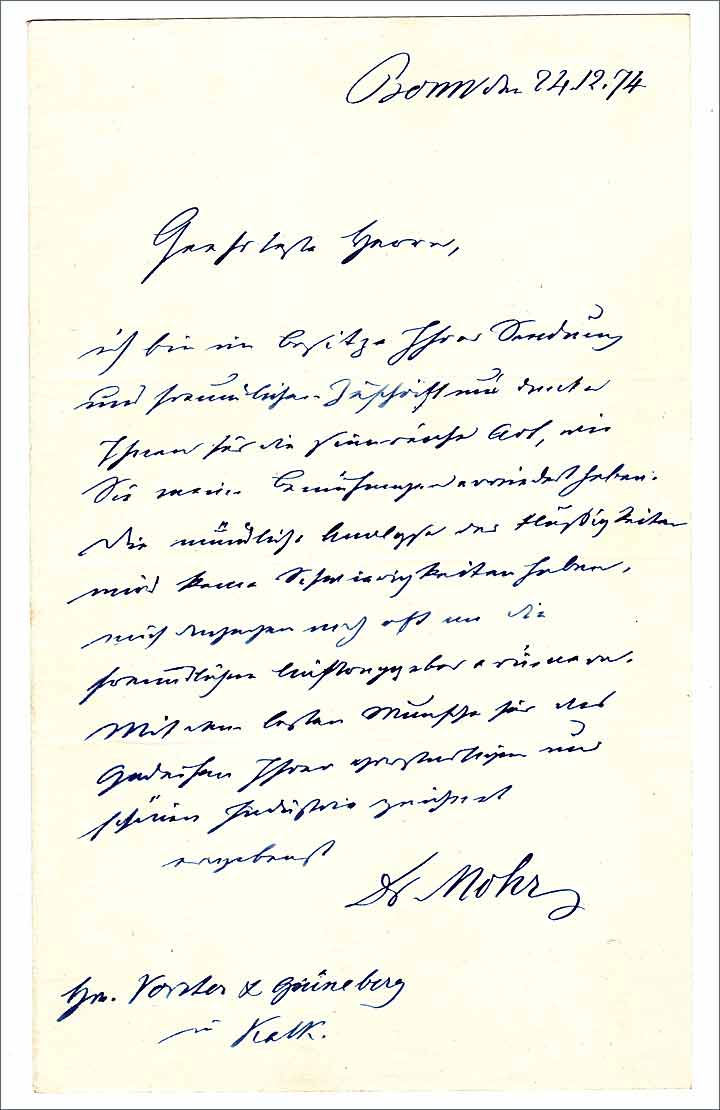 Bonn den 24.12.74
Geehrteste Herrn,
ich bin im Besitze Ihrer Sendung
und freundlichen Zuschrift und danke
Ihnen für die Art, wie
Sie meine Bemühungen erwiedert haben.
Die mündliche Analyse der Flüßigkeiten
wird keine Schwierigkeiten haben,
mich noch oft an die
freundlichen Auftraggeber erinnern.
Mit dem besten Wunsche für das
Gedeihen Ihrer großartigen und
schönen Industrie zeichnet
ergebenst
Dr Mohr
Hn. Vorster & Grüneberg
in Kalk.